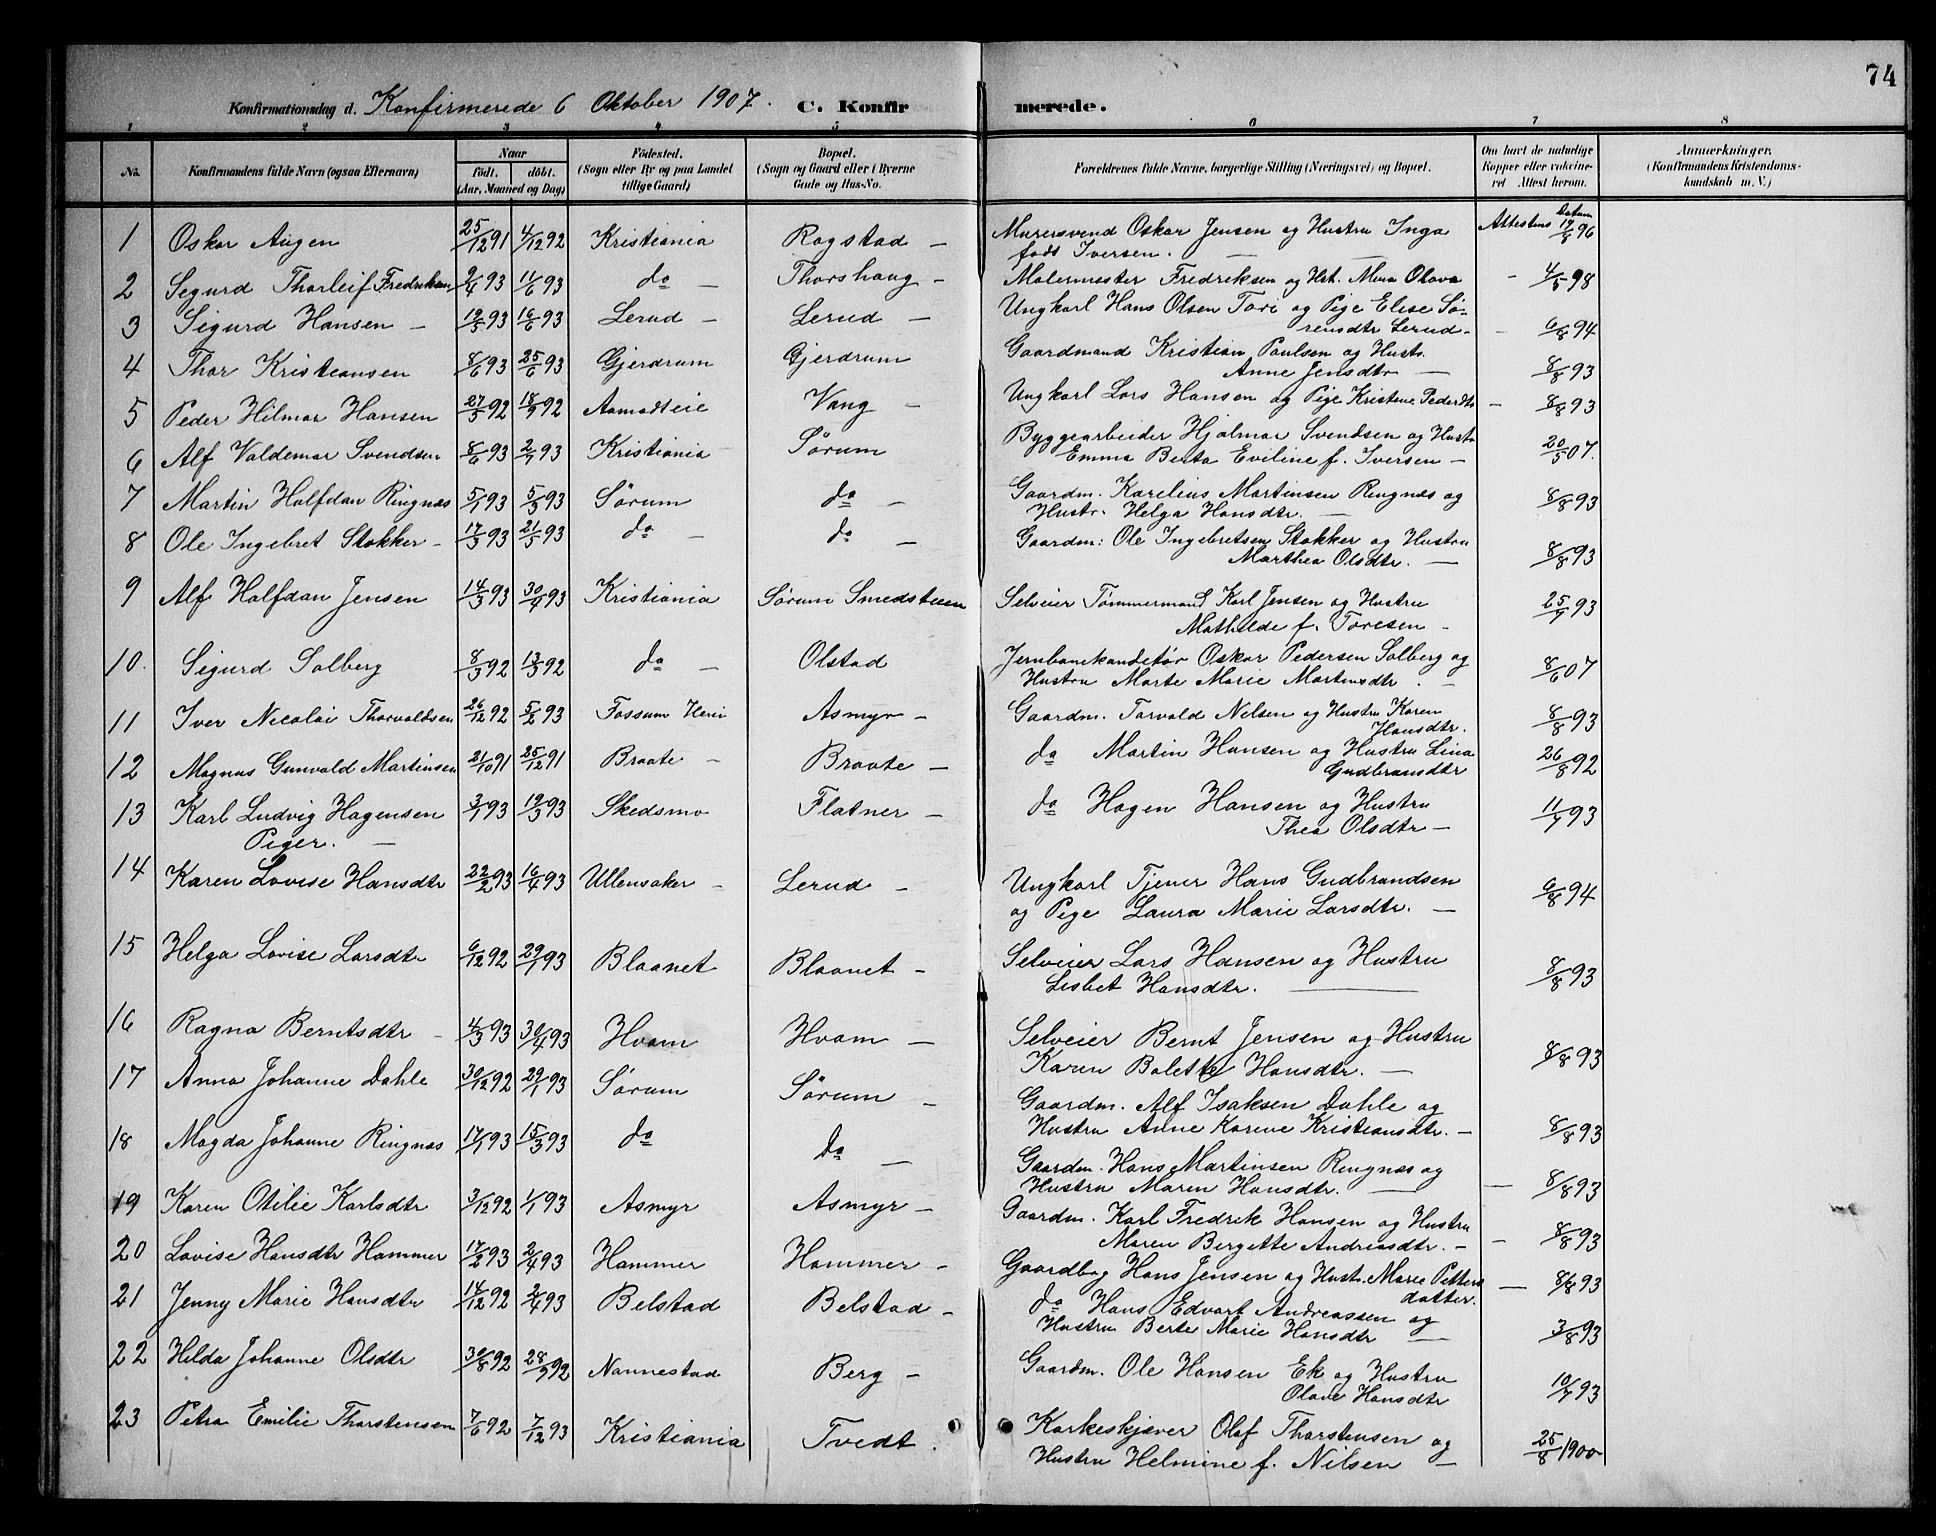 74
Konfirmationsdag d. Konfirmerede 6 Oktober 1907. C. Konfirmerede.
1 2 3 4 5 6 7 8
No. Konfirmandens fulde Navn (ogsaa Efternavn) Naar født. døbt. (Aar, Maaned og Dag) Fødested. (Sogn eller By og paa Landet tillige Gaard) Bopæl. (Sogn og Gaard eller i Byerne Gade og Hus-No. Forældrenes fulde Navne, borgerlige Stilling (Næringsvei) og Bopæl. Om havt de naturlige Kopper eller vakcineret Attest herom. Anmærkninger. (Konfirmandens Kristendomskundskab m. V.)
1 Oskar Augen 25/12 91 4/12 92 Kristiania Rogstad – Murersvend Oskar Jensen og Hustru Inga født Iversen. Attestens Datum 17/8 96
2 Segurd Thorleif Fredriksen 9/4 93 11/6 93 do – Thorshaug – Malermester Fredriksen og Hst. Mina Olava – 4/5 98
3 Sigurd Hansen – 19/5 93 16/6 93 Lerud – Lerud – Ungkarl Hans Olsen Tori og Pige Elise Sørensdtr Lerud – 6/8 94
4 Thor Kristiansen 8/6 93 25/6 93 Gjerdrum Gjerdrum Gaardmand Kristian Paulsen og Hustr. Anne Jensdtr – 8/8 93
5 Peder Hilmar Hansen 27/5 92 18/9 92 Aamodteie Vang – Ungkarl Lars Hansen og Pige Kristine Pedersdtr – 8/8 93
6 Alf Valdemar Svendsen 8/6 93 2/7 93 Kristiania Sørum Byggearbeider Hjalmar Svendsen og Hustr Emma Berta Eviline f. Iversen – 20/5 07.
7 Martin Halfdan Ringnæs 5/1 93 5/3 93 Sørum do – Gaardm. Karelius Martinsen Ringnæs og Hustr. Helga Hansdtr. –
8/8 93
8 Ole Ingebret Stokker – 17/3 93 21/5 93 do – do – Gaardm: Ole Ingebretsen Stokker og Hustru Marthea Olsdtr. – 8/8 93
9 Alf Halfdan Jensen 14/3 93 30/4 93 Kristiania Sørum Smedstuen Selveier Tømmermand Karl Jensen og Hustru Mathilde f. Toresen – 25/9 93
10. Sigurd Solberg 8/3 92 13/3 92 do – Olstad Jernbanekondetør Oskar Pedersen Solberg og Hustru Marte Marie Martinsdtr. – 8/6 07
11 Iver Nicolai Thorvaldsen 26/12 92 5/2 93 Fossum Asmyr – Gaardm. Torvald Nelsen og Hustru Karen Hansdtr. 8/8 93
12 Magnus Gunvald Martinsen 21/10 91 25/12 91 Braate – Braate – do Martin Hansen og Hustru Lina Gudbransdtr 26/8 92
13 Karl Ludvig Hagensen 3/1 93 19/3 93 Skedsmo Flatner – do Hagen Hansen og Hustru Thea Olsdtr – 11/7 93
Piger. –
14 Karen Lovise Hansdtr 22/2 93 16/4 93 Ullensaker – Lerud – Ungkarl Tjener Hans Gudbrandsen og Pige Laura Marie Larsdtr. – 6/8 94
15 Helga Lovise Larsdtr 6/12 92 29/1 93 Blaanet Blaanet – Selveier Lars Hansen og Hustru Lisbet Hansdtr. – 8/8 93
16 Ragna Berntsdtr – 4/3 93 30/4 93 Hvam Hvam – Selveier Bernt Jensen og Hustru Karen Bolette Hansdtr. – 8/8 93
17 Anna Johanne Dahle 30/12 92 29/1 93 Sørum Sørum – Gaardm. Alf Isaksen Dahle og Hustru Anne Karine Kristiansdtr. – 8/8 93
18 Magda Johanne Ringnæs 17/1 93 15/3 93 do do – Gaardm. Hans Martinsen Ringnæs og Hustru Maren Hansdtr. – 8/8 93
19 Karen Otilie Karlsdtr 3/12 92 1/1 93 Asmyr Asmyr – Gaardm. Karl Fredrik Hansen og Hustru Maren Bergette Andreasdtr. – 8/8 93
20 Lovise Hansdtr Hammer 17/2 93 2/4 93 Hammer Hammer – Gaardbrg Hans Jensen og Hustr. Marie Petters datter. – 8/8 93
21 Jenny Marie Hansdtr 14/12 92 2/4 93 Belstad Belstad – do Hans Edvart Andreassen og Hustru Berte Marie Hansdtr – 3/8 93
22 Hilda Johanne Olsdtr 30/8 92 28/9 92 Nannestad Berg – Gaardm. Ole Hansen Ek og Hustru Olave Hansdtr 10/7 93
23 Petra Emilie Thorstensen 7/6 92 7/12 93 Kristiania Tvedt. Korkeskjærer Olaf Thorstensen og Hustru Helmine f. Nilsen – 25/8 1900